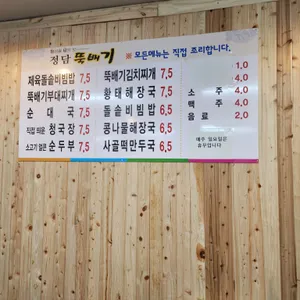 정담 뚝배기 ※ 모든메뉴는 직접 조리합니다.
제육돌솥비빔밥 7,5
뚝배기부대찌개 7,5
순대국 7,5
직접 띄운 청국장 7,5
소고기 얼큰 순두부 7,5
뚝배기김치찌개 7,5
황태해장국 7,5
돌솥비빔밥 6,5
콩나물해장국 6,5
사골떡만두국 6,5
1,0
4,0
소주 4,0
맥주 4,0
음료 2,0
매주 일요일은
휴무입니다